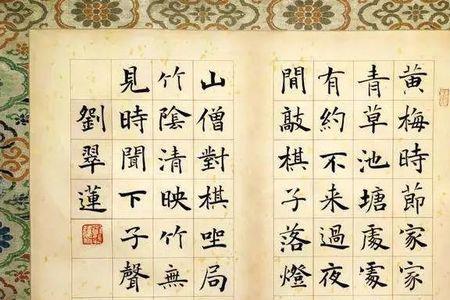 黄梅時節家家
青草池塘處處
有約不来過夜
閒敲棋子落燈
山僧對棋坐局
竹陰清映竹無
見時聞下子聲
劉翠蓮